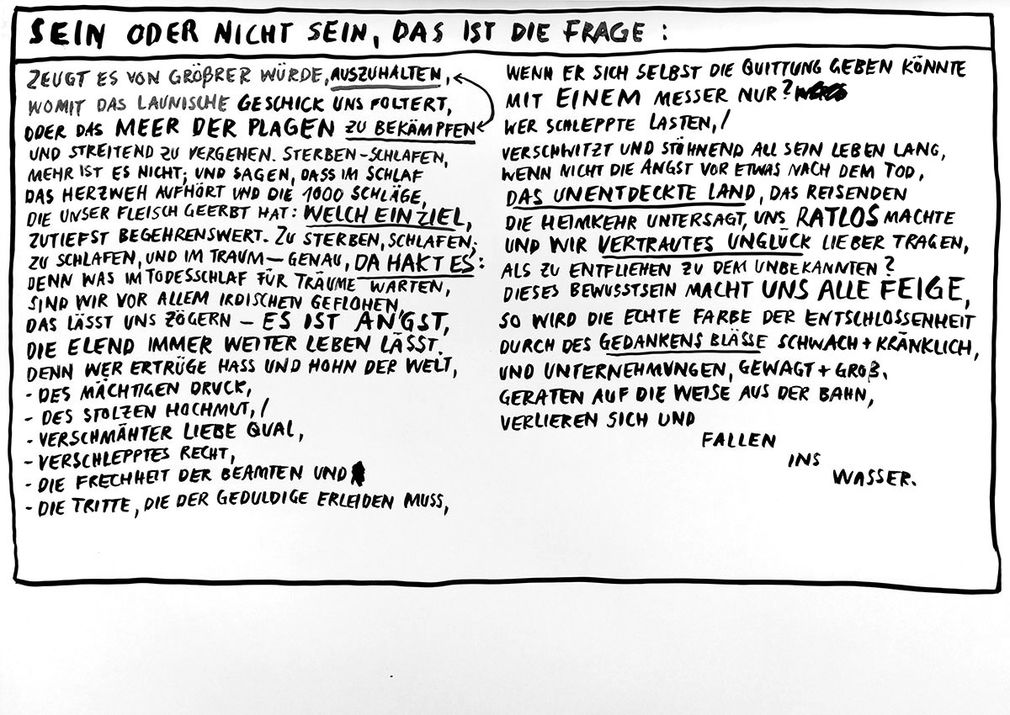 SEIN ODER NICHT SEIN, DAS IST DIE FRAGE:
ZEUGT ES VON GRÖßRER WÜRDE, AUSZUHALTEN,
WOMIT DAS LAUNISCHE GESCHICK UNS FOLTERT,
ODER DAS MEER DER PLAGEN ZU BEKÄMPFEN
UND STREITEND ZU VERGEHEN. STERBEN-SCHLAFEN,
MEHR IST ES NICHT; UND SAGEN, DASS IM SCHLAF
DAS HERZWEH AUFHÖRT UND DIE 1000 SCHLÄGE,
DIE UNSER FLEISCH GEERBT HAT: WELCH EIN ZIEL,
ZUTIEFST BEGEHRENSWERT. ZU STERBEN, SCHLAFEN;
ZU SCHLAFEN, UND IM TRAUM - GENAU, DA HAKT ES:
DENN WAS IM TODESSCHLAF FÜR TRÄUME WARTEN,
SIND WIR VOR ALLEM IRDISCHEN GEFLOHEN,
DAS LÄSST UNS ZÖGERN - ES IST ANGST,
DIE ELEND IMMER WEITER LEBEN LÄSST.
DENN WER ERTRÜGE HASS UND HOHN DER WELT,
- DES MÄCHTIGEN DRUCK,
- DES STOLZEN HOCHMUT,/
- VERSCHMÄHTER LIEBE QUAL,
- VERSCHLEPPTES RECHT,
- DIE FRECHHEIT DER BEAMTEN UND
- DIE TRITTE, DIE DER GEDULDIGE ERLEIDEN MUSS,
WENN ER SICH SELBST DIE QUITTUNG GEBEN KÖNNTE
MIT EINEM MESSER NUR?
WER SCHLEPPTE LASTEN,/
VERSCHWITZT UND STÖHNEND ALL SEIN LEBEN LANG,
WENN NICHT DIE ANGST VOR ETWAS NACH DEM TOD,
DAS UNENTDECKTE LAND, DAS REISENDEN
DIE HEIMKEHR UNTERSAGT, UNS RATLOS MACHTE
UND WIR VERTRAUTES UNGLÜCK LIEBER TRAGEN,
ALS ZU ENTFLIEHEN ZU DEM UNBEKANNTEN?
DIESES BEWUSSTSEIN MACHT UNS ALLE FEIGE,
SO WIRD DIE ECHTE FARBE DER ENTSCHLOSSENHEIT
DURCH DES GEDANKENS BLÄSSE SCHWACH + KRÄNKLICH,
UND UNTERNEHMUNGEN, GEWAGT + GROß,
GERATEN AUF DIE WEISE AUS DER BAHN,
VERLIEREN SICH UND
FALLEN
INS
WASSER.